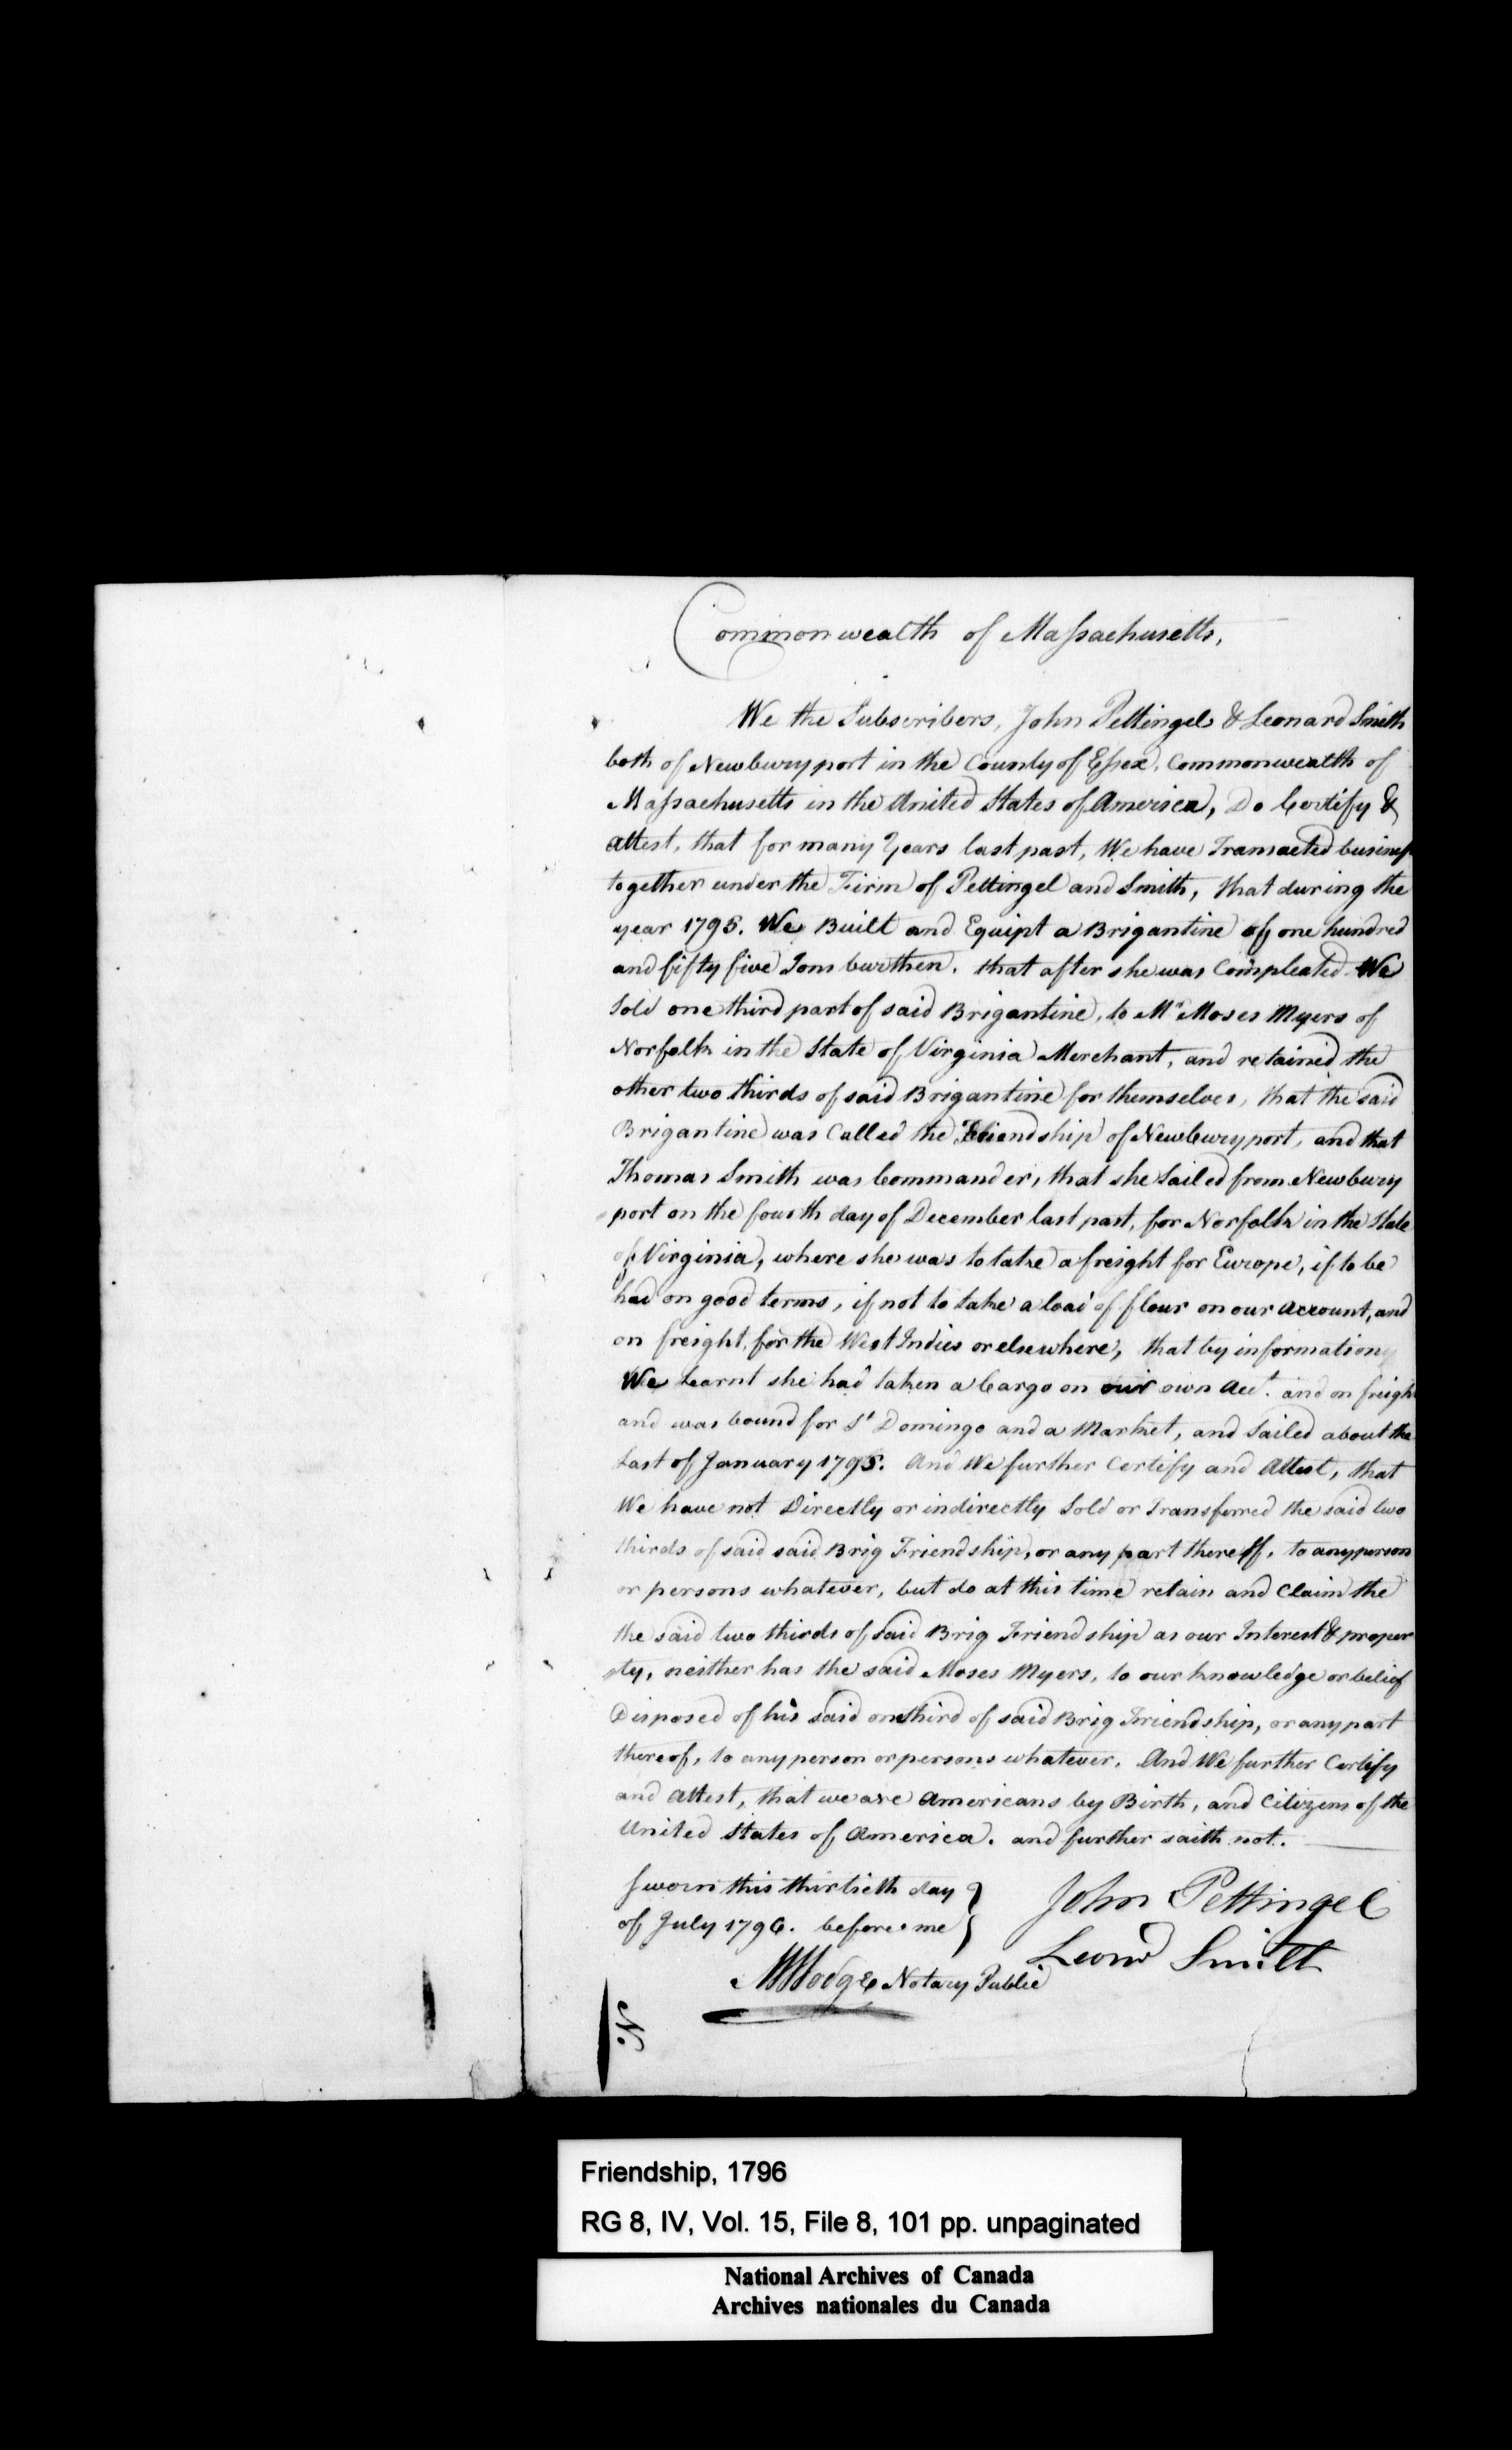 Commonwealth of Massachusetts,
We the Subscribers, John Pettingel & Leonard Smith
both of Newburyport in the County of Essex, Commonwealth of
Massachusetts in the United States of America, Do Certify &
attest, that for many Years last past, We have Transacted business
together under the Firm of Pettingel and Smith, that during the
year 1795. We Built and Equipt a Brigantine of one hundred
and fifty five Tons burthen. that after she was Compleated We
Sold one third part of said Brigantine, to Mr Moses Myers of
Norfolk in the State of Virginia Merchant, and retained the
other two thirds of said Brigantine for themselves, that the said
Brigantine was Called the Friendship of Newburyport, and that
Thomas Smith was Commander, that she Sailed from Newbury
port on the fourth day of December last past, for Norfolk in the State
of Virginia, where she was to take a freight for Europe, if to be
had on good terms, if not to take a load of flour on our Account, and
on freight, for the West Indies or elsewhere, that by information
We Learnt she had taken a Cargo on our own Acct. and on freight
and was bound for St Domingo and a Market, and Sailed about the
Last of January 1795. And We further Certify and Attest, that
We have not Directly or indirectly Sold or Transferred the said two
thirds of said said Brig Friendship, or any part thereoff, to any person
or persons whatever, but do at this time retain and Claim the
the said two thirds of said Brig Friendship as our Interest & proper
ty, neither has the said Moses Myers, to our knowledge or belief
Disposed of his said onethird of said Brig Friendship, or any part
thereof, to any person or persons whatever. And We further Certify
and Attest, that we are Americans by Birth, and Citizens of the
United States of America. and further saith not.
Sworn this thirtieth day
of July 1796. before me
John Pettingel
Leond Smith
M Hodge Notary Public
N
Friendship, 1796
RG 8, IV, Vol. 15, File 8, 101 pp. unpaginated
National Archives of Canada
Archives nationales du Canada